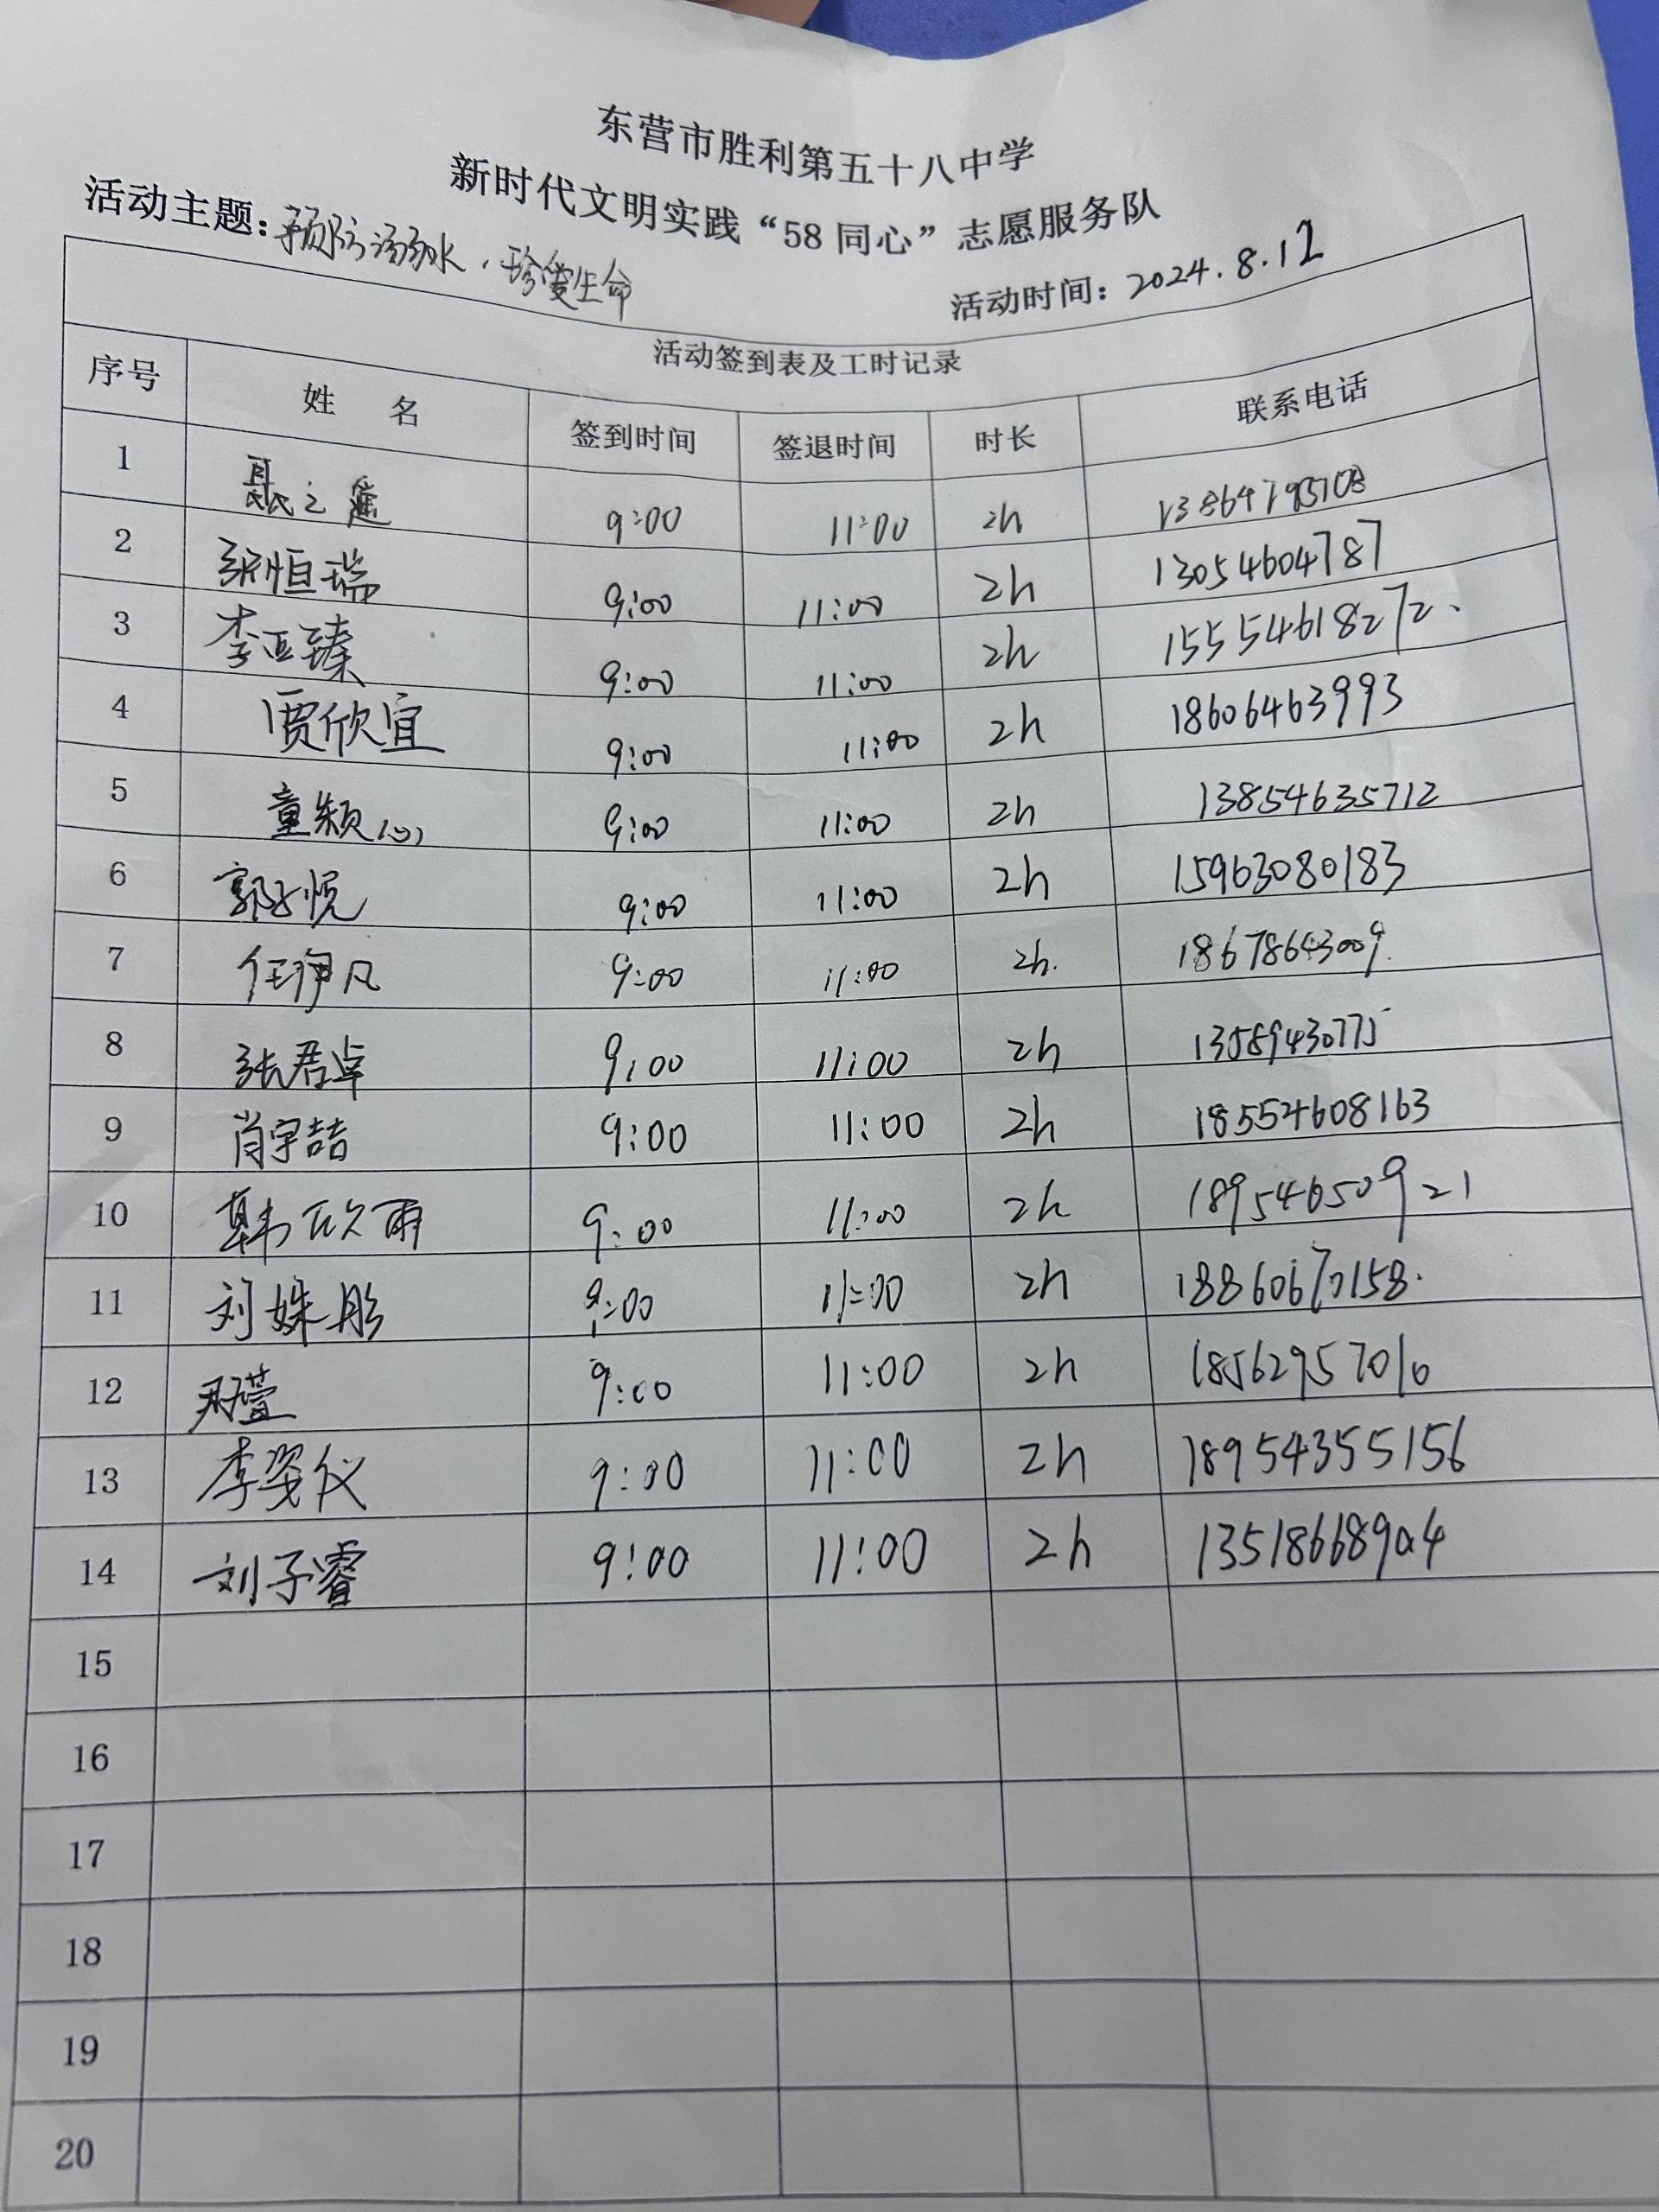 东营市胜利第五十八中学
新时代文明实践“58同心”志愿服务队
活动主题：预防溺水，珍爱生命
活动时间：2024.8.12
活动签到表及工时记录
序号 姓名 签到时间 签退时间 时长 联系电话
1 聂之遥 9:00 11:00 2h
2 张恒瑞 9:00 11:00 2h 13054604787
3 李亚臻 9:00 11:00 2h 15554618272.
4 贾欣宜 9:00 11:00 2h 18606463993
5 童颖心 9:00 11:00 2h 13854635712
6 郭子悦 9:00 11:00 2h 15963080183
7 任伊凡 9:00 11:00 2h. 18678643009.
8 张君卓 9:00 11:00 2h 13589430775
9 肖宇喆 9:00 11:00 2h 18554608163
10 韩欣雨 9:00 11:00 2h 18954650921
11 刘姝彤 9:00 11:00 2h 18860670158.
12 9:00 11:00 2h 18562957010
13 李姿仪 9:00 11:00 2h 18954355156
14 刘子睿 9:00 11:00 2h 13518668904
15
16
17
18
19
20